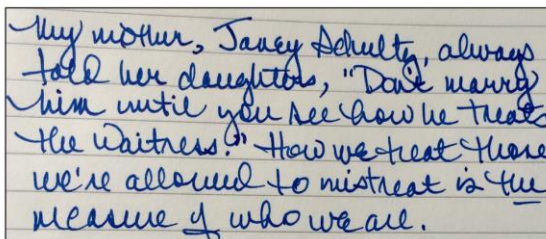 My mother, Janey Schultz, always
told her daughters, "Don't marry
him until you see how he treats
the waitress." How we treat those
we're allowed to mistreat is the
measure of who we are.